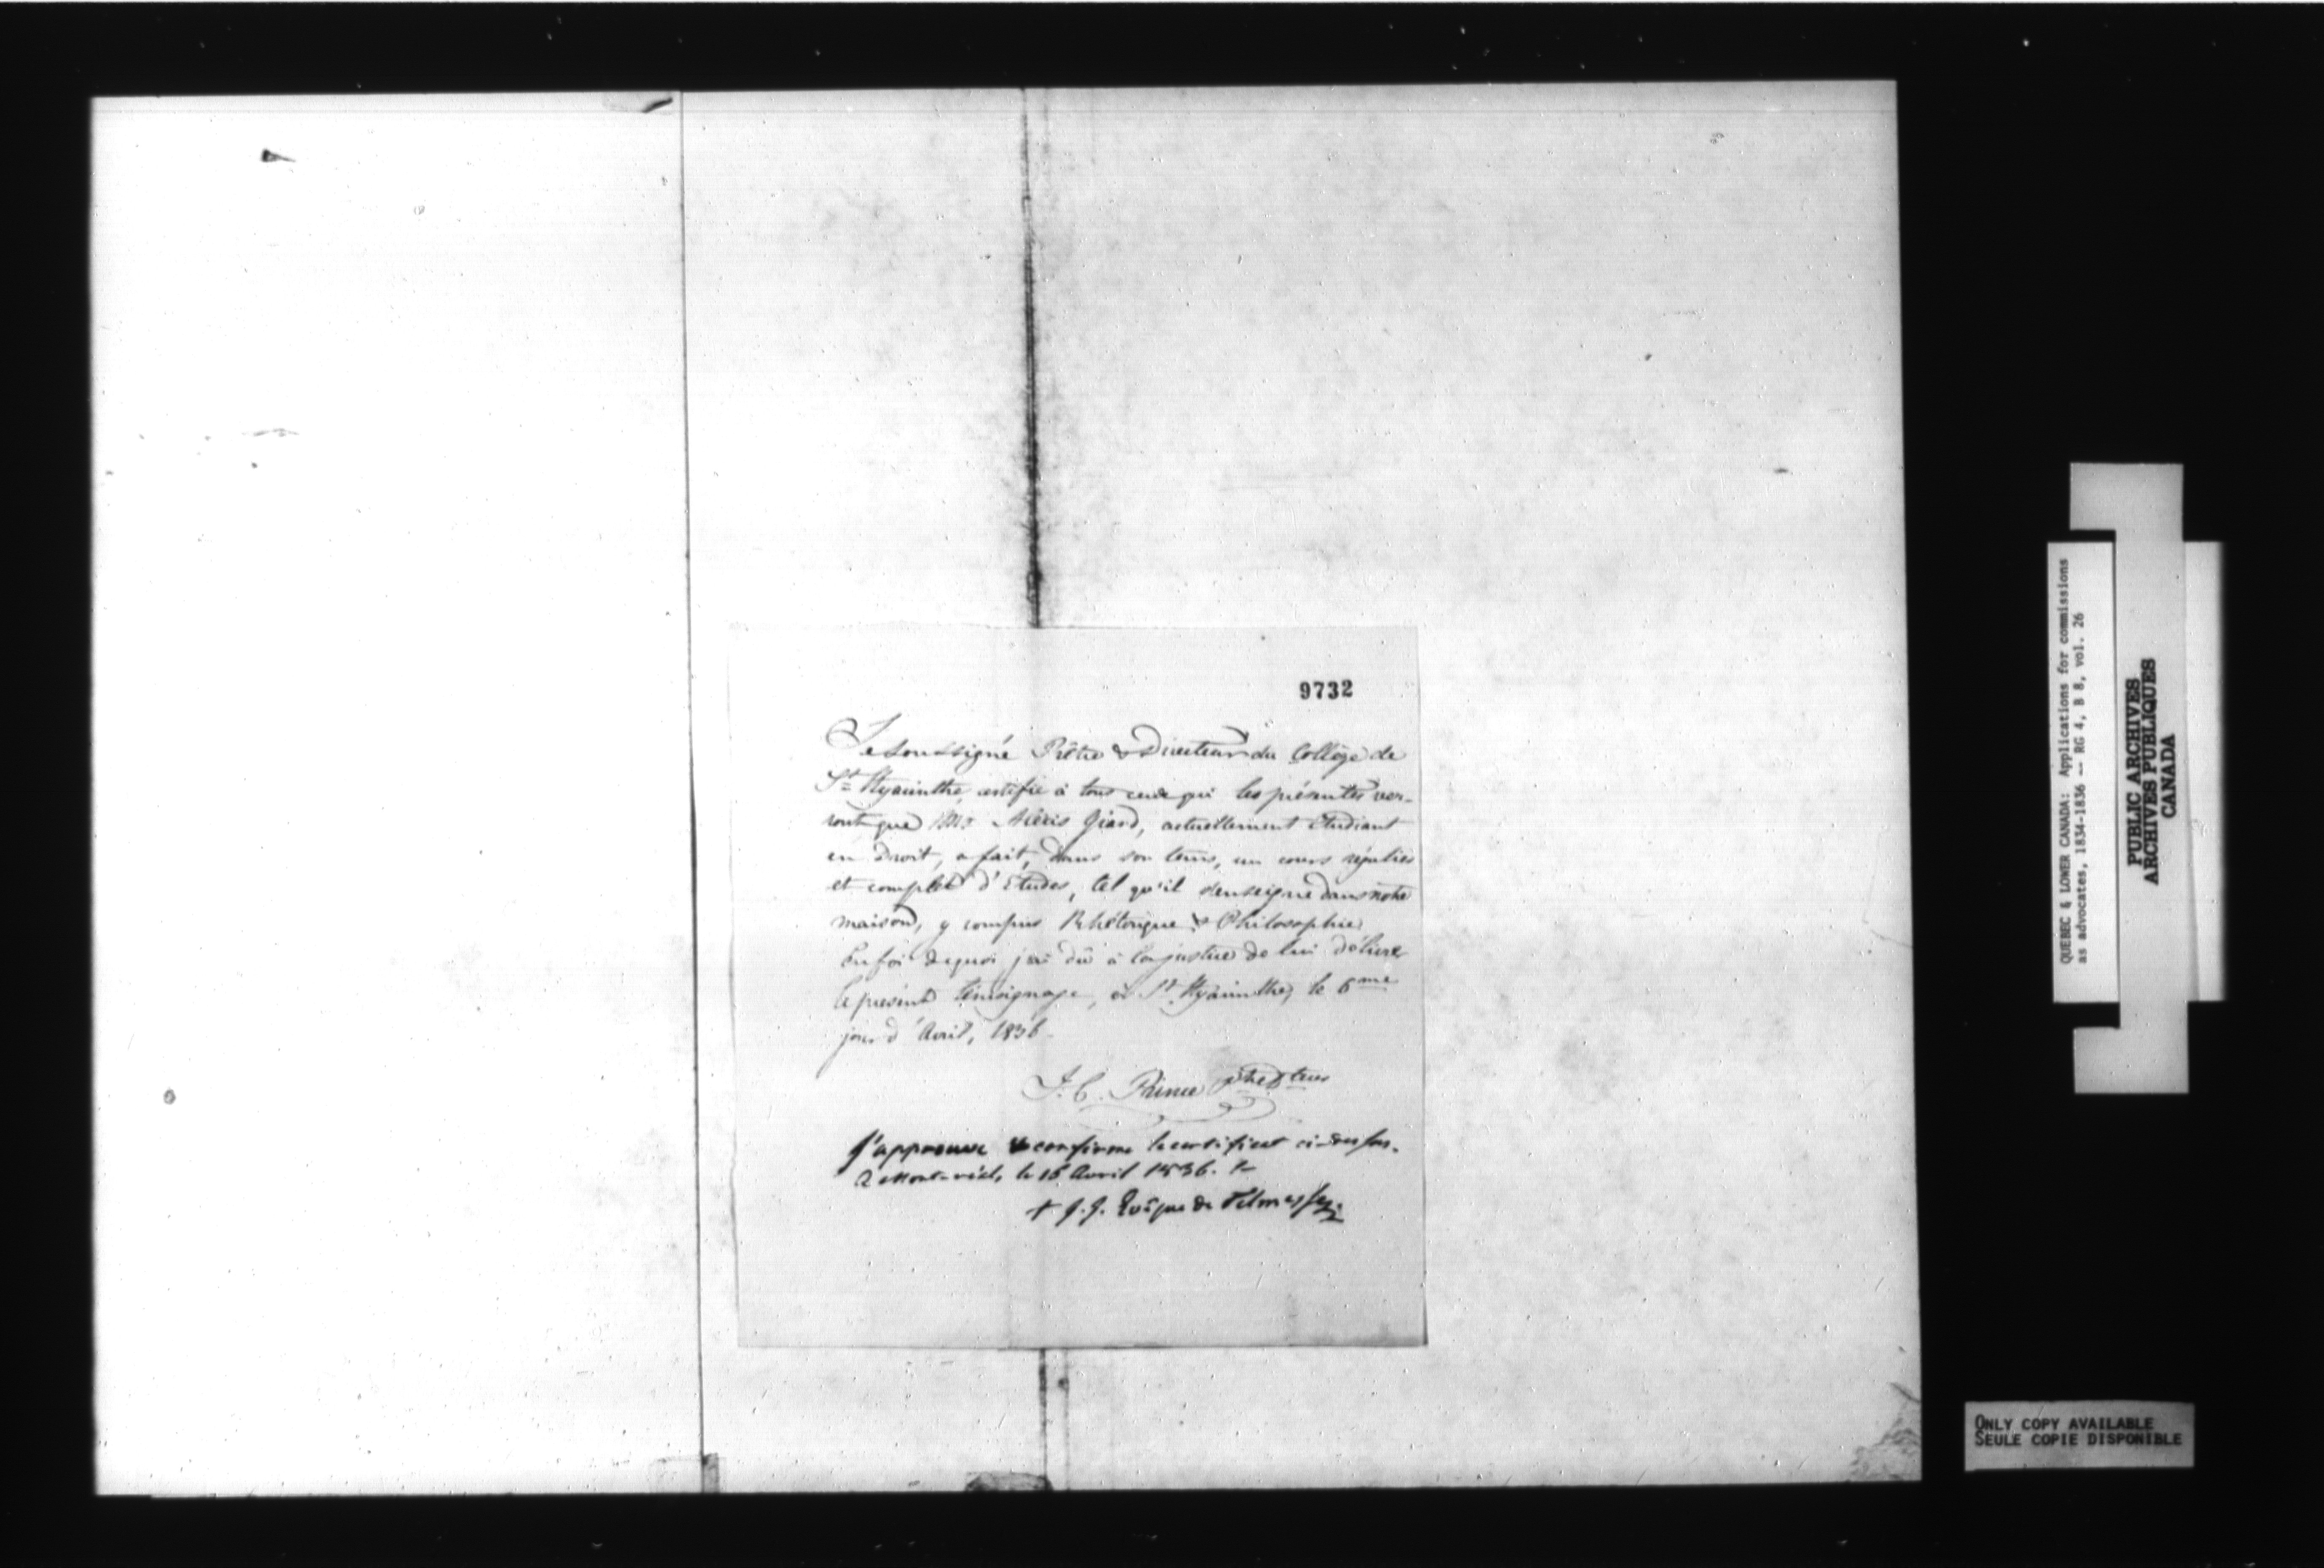 9732
Je soussigné Prêtre & Directeur du Collège de
St Hyacinthe, certifie à tous ceux qui les présentes ver-
ront que Alexis Giard, actuellement Etudiant
en Droit, a fait, dans son tems, un cours régulier
et complet d'Etudes, tel qu'il s'enseigne dans notre
maison, y compris Rhétorique & Philosophie
En foi de quoi j'ai dû à la justice de lui délivrer
le présent témoignage, à St Hyacinthe, le 6me
jour d'Avril, 1836.
J. C. Prince ptre
J'approuve & confirme le certificat ci-dessus.
A Mont-réal, le 16 Avril 1836.
+ J. J. Evêque de Telmesse
QUEBEC & LOWER CANADA: Applications for commissions
as advocates, 1834-1836 -- RG 4, B 8, vol. 26
PUBLIC ARCHIVES
ARCHIVES PUBLIQUES
CANADA
ONLY COPY AVAILABLE
SEULE COPIE DISPONIBLE